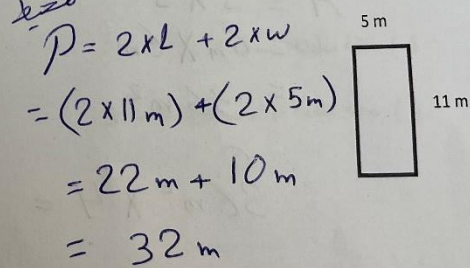 P = 2 x L + 2 x w
= (2 x 11 m) + (2 x 5m)
= 22 m + 10 m
= 32 m
5 m
11 m